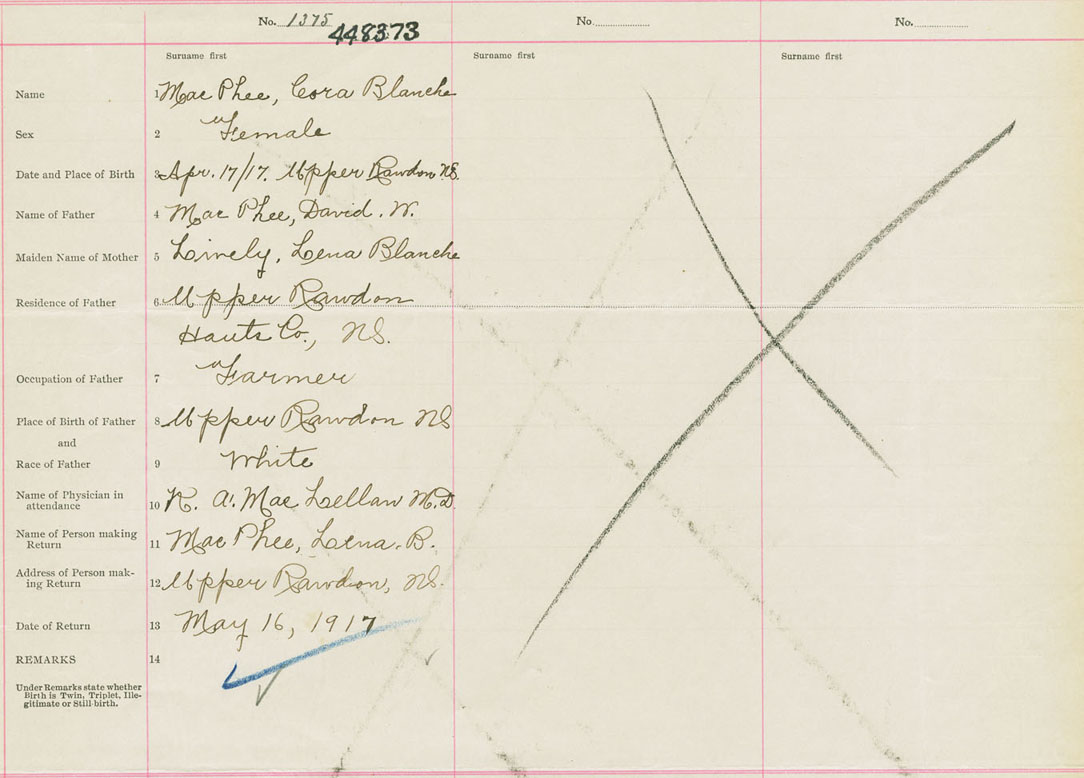 No. 1375 No. No.
448373
Surname first Surname first Surname first
Name 1 Mac Phee, Cora Blanche
Sex 2 " Female
Date and Place of Birth 3 Apr. 17/17. Upper Rawdon N.S.
Name of Father 4 Mac Phee, David. W.
Maiden Name of Mother 5 Lively, Lena Blanche
Residence of Father 6 Upper Rawdon
Hants Co., N.S.
Occupation of Father 7 " Farmer
Place of Birth of Father 8 Upper Rawdon NS
and
Race of Father 9 White
Name of Physician in
attendance 10 R. A. Mac Lellan M.D.
Name of Person making
Return 11 Mac Phee, Lena. B.
Address of Person mak-
ing Return 12 Upper Rawdon, NS.
Date of Return 13 May 16, 1917
REMARKS 14
Under Remarks state whether
Birth is Twin, Triplet, Ille-
gitimate or Still-birth.